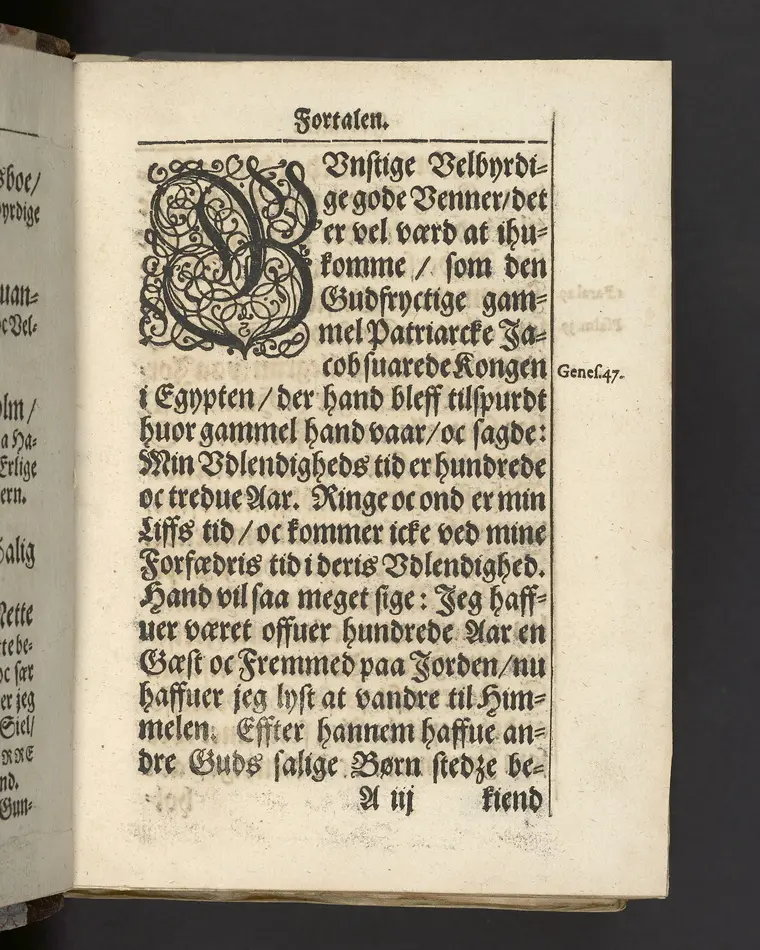 Fortalen.
GVnstige Velbyrdi-
ge gode Venner/det
er vel værd at ihu-
komme / som den
Gudfryctige gam-
mel Patriarcke Ja-
cob suarede Kongen
Genes.47.
i Egypten / der hand bleff tilspurdt
huor gammel hand vaar/oc sagde:
Min Vdlendigheds tid er hundrede
oc tredue Aar. Ringe oc ond er min
Liffs tid / oc kommer icke ved mine
Forfædris tid i deris Vdlendighed.
Hand vil saa meget sige: Jeg haff-
uer været offuer hundrede Aar en
Gæst oc Fremmed paa Jorden/nu
haffuer jeg lyst at vandre til Him-
melen. Effter hannem haffue an-
dre Guds salige Børn stedze be-
A iij kiend
sboe/
yrdige
uan-
oc Vel-
olm /
a Ha-
Erlige
ern.
Salig
Nette
tte be-
oc sær
er jeg
Siel/
RRE
nd.
Gun-